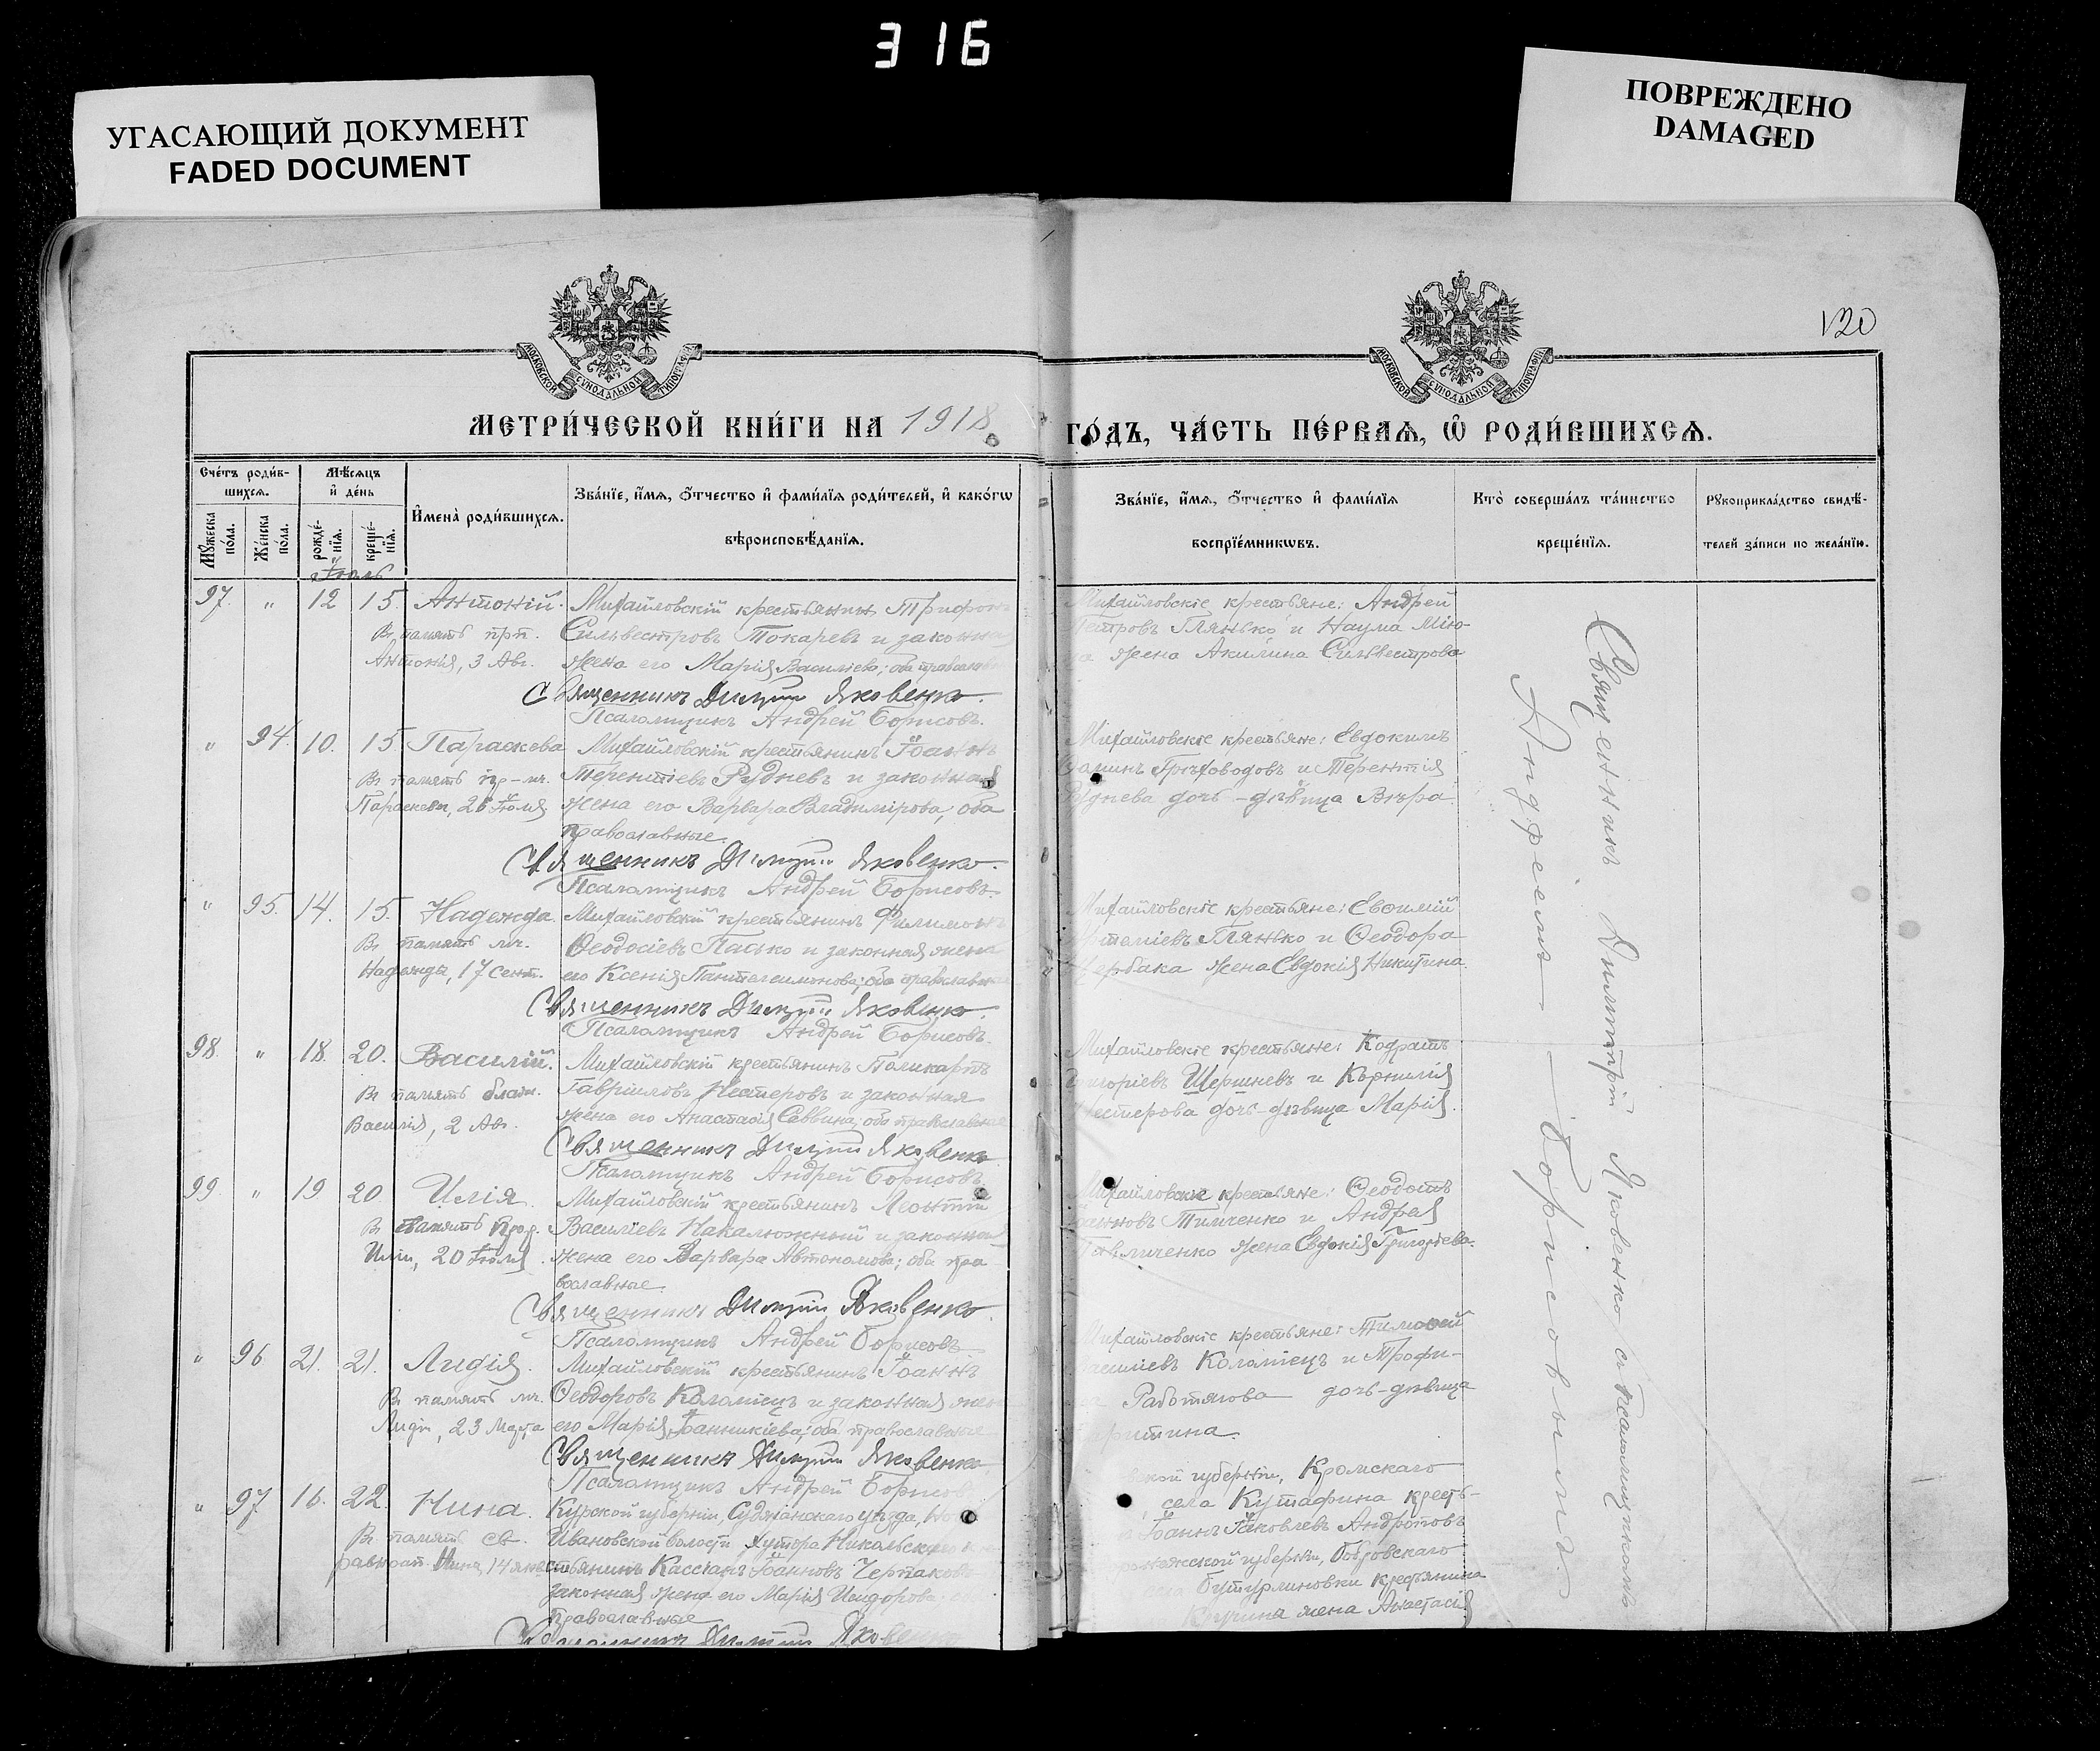 316
УГАСАЮЩИЙ ДОКУМЕНТ
FADED DOCUMENT
ПОВРЕЖДЕНО
DAMAGED
120
МОСКОВСКОЙ СѴНОДАЛЬНОЙ ТИПОГРАФІИ
МОСКОВСКОЙ СѴНОДАЛЬНОЙ ТИПОГРАФІИ
МЕТРИ́ЧЕСКОЙ КНИ́ГИ НА 1918
ГО́ДЪ, ЧА́СТЬ ПЕ́РВАѦ, Ѡ҆ РОДИ́ВШИХСѦ.
Сче́тъ роди́в-
шихсѧ.
Мꙋ́жеска по́ла.
Же́нска по́ла.
Мѣ́сѧцъ
и҆ де́нь
рожде́-
нїѧ.
креще́-
нїѧ.
И҆мена̀ роди́вшихсѧ.
Зва́нїе, и҆́мѧ, ѻ҆́тчество и҆ фами́лїѧ роди́телей, и҆ како́гѡ
вѣроисповѣ́данїѧ.
Зва́нїе, и҆́мѧ, ѻ҆́тчество и҆ фами́лїѧ
воспрїе́мникѡвъ.
Кто̀ соверша́лъ та́инство
креще́нїѧ.
Рꙋкоприкла́дство свидѣ́-
телей за́писи по жела́нїю.
Іюль
97. " 12 15. Антоній.
Въ память прп.
Антонія, 3 Авг.
Михайловскій крестьянин Трифонъ
Сильвестровъ Токаревъ и законная
жена его Марія Василіева; оба православ
Священникъ Димитрій Яковенко.
Псаломщикъ Андрей Борисовъ.
Михайловскіе крестьяне: Андрей
Петровъ Глянько и Наума
жена Акилина Сильвестрова
" 94. 10. 15 Параскева
Въ память пр-мч.
Параскевы, 26 Іюля
Михайловскій крестьянинъ Іоаннъ
Терентіевъ Рудневъ и законная
жена его Варвара Владимірова, оба
православные.
Священникъ Димитрій Яковенко.
Псаломщикъ Андрей Борисовъ.
Михайловскіе крестьяне: Евдокимъ
Грѣховодовъ и Терентія
Руднева дочь-дѣвица Вѣра.
" 95. 14. 15. Надежда.
Въ память мч.
Надежды, 17 Сент.
Михайловскій крестьянинъ Филимонъ
Ѳеодосіевъ Пасько и законная жена
его Ксенія Пантелеимонова; оба православн
Священникъ Димитрій Яковенко.
Псаломщикъ Андрей Борисовъ.
Михайловскіе крестьяне: Евѳимій
Глянько и Ѳеодора
Щербака жена Евдокія Никитина.
98. " 18. 20. Василій.
Въ память блаж.
Василія, 2 Авг.
Михайловскій крестьянинъ Поликарпъ
Гавріиловъ Нестеровъ и законная
жена его Анастасія Саввина, оба православные
Священникъ Димитрій Яковенко
Псаломщикъ Андрей Борисовъ.
Михайловскіе крестьяне: Кодратъ
Григоріевъ Шершневъ и Корнилія
Нестерова дочь-дѣвица Марія.
99 " 19 20 Илія.
Въ память Прор.
Иліи, 20 Іюля.
Михайловскій крестьянинъ Леонтій
Василіевъ Накалюжный и законная
жена его Варвара Автономова; оба пра-
вославные.
Священникъ Димитрій Яковенко.
Псаломщикъ Андрей Борисовъ.
Михайловскіе крестьяне: Ѳеодотъ
Тимченко и Андрея
Павличенко жена Евдокія Григорьева.
" 96 21. 21. Лидія.
Въ память мч.
Лидіи, 23 Марта
Михайловскій крестьянинъ Іоаннъ
Ѳеодоровъ Коломіецъ и законная жена
его Марія Іоанникіева; оба православные
Священникъ Димитрій Яковенко
Псаломщикъ Андрей Борисов
Михайловскіе крестьяне: Тимоѳей
Василіевъ Коломіецъ и Трофи-
Работягова дочь-дѣвица
" 97. 16. 22. Нина.
Въ память св.
равноап. Нины, 14 янв
Курской губерніи, Суджанскаго уѣзда,
Ивановской волости, хутора Никольскаго
стьянинъ Кассіанъ Іоанновъ Черпаковъ
законная жена его Марія Исидорова;
православные
Священникъ Димитрій Яковенко
губерніи, Кромскаго
села Кутафина кресть-
Іоаннъ Іаковлевъ Андроповъ
губерніи, Бобровскаго
Бутурлиновки крестьянина
жена Анастасія
Священникъ Димитрій Яковенко съ псаломщикомъ
Андреемъ — Борисовымъ.